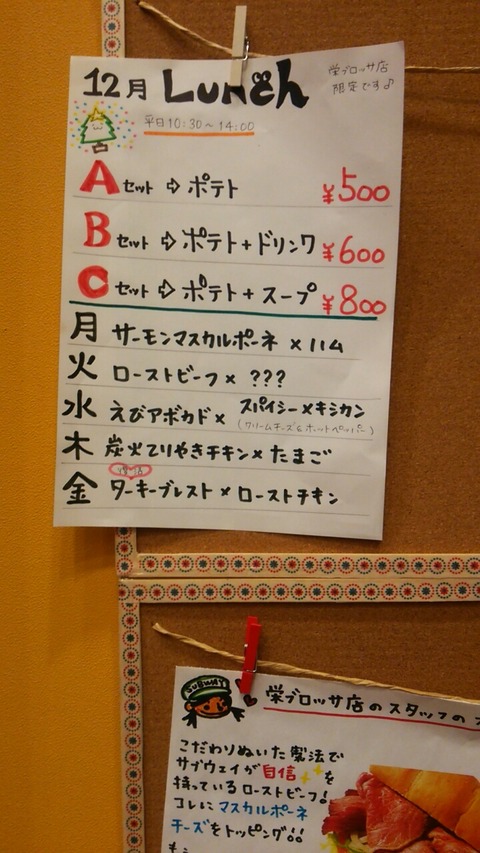 12月 Lunch
栄ブロッサ店
限定です♪
平日10:30~14:00
Aセット⇨ポテト ¥500
Bセット⇨ポテト+ドリンク ¥600
Cセット⇨ポテト+スープ ¥800
月 サーモンマスカルポーネ×ハム
火 ローストビーフ× ???
水 えびアボカド× スパイシー×キシカン
(クリームチーズ&ホットペッパー)
木 炭火てりやきチキン×たまご
金 ターキーブレスト×ローストチキン
SUBWAY
栄ブロッサ店のスタッフの
こだわりぬいた製法で
サブウェイが自信を
持っているローストビーフ!
コレにマスカルポーネ
チーズをトッピング!!